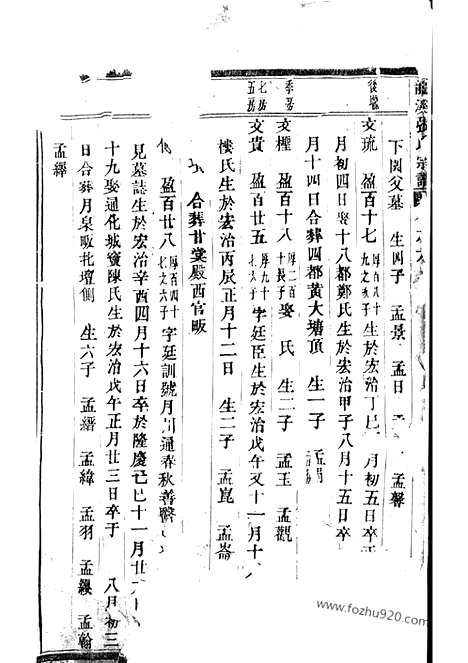 宗譜
下園父墓 生四子 孟景 孟日 孟馨
後隴
文琉 盈百十七 字廷 生於宏治丁巳 月初五日卒于
月初四日娶十八都鄭氏生於宏治甲子八月十五日卒
月十四日合葬四都黃大塘頂 生一子
季房
文權 盈百十八 娶 氏 生二子 孟玉 孟觀
七房
五房
文貴 盈百廿五 字廷臣生於宏治戊午又十一月十
樓氏生於宏治丙辰正月十二日 生二子 孟崑 孟崙
合葬甘棠殿西官畈
盈百廿八 字廷訓號月 通春秋善醫
見墓誌生於宏治辛酉四月十六日卒於隆慶己巳十一月廿
十九娶通化城竇陳氏生於宏治戊午正月廿三日卒于 八月初三
日合葬月泉畈社壇側 生六子 孟縉 孟緯 孟羽 孟纓 孟翰
孟繹
www.fozhu920.com